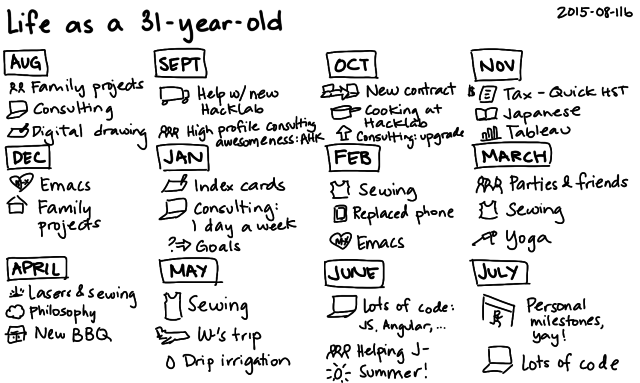 Life as a 31-year-old
2015-08-11b
AUG
Family projects
Consulting
Digital drawing
SEPT
Help w/ new
Hacklab
High profile consulting
awesomeness: AHK
OCT
New contract
Cooking at
Hacklab
Consulting: upgrade
NOV
$ Tax - Quick HST
Japanese
Tableau
DEC
Emacs
Family
projects
JAN
Index cards
Consulting:
1 day a week
?⇒ Goals
FEB
Sewing
Replaced phone
Emacs
MARCH
Parties & friends
Sewing
Yoga
APRIL
Lasers & sewing
Philosophy
New BBQ
MAY
Sewing
W's trip
Drip irrigation
JUNE
Lots of code:
JS, Angular, ...
Helping J-
Summer!
JULY
Personal
milestones,
yay!
Lots of code